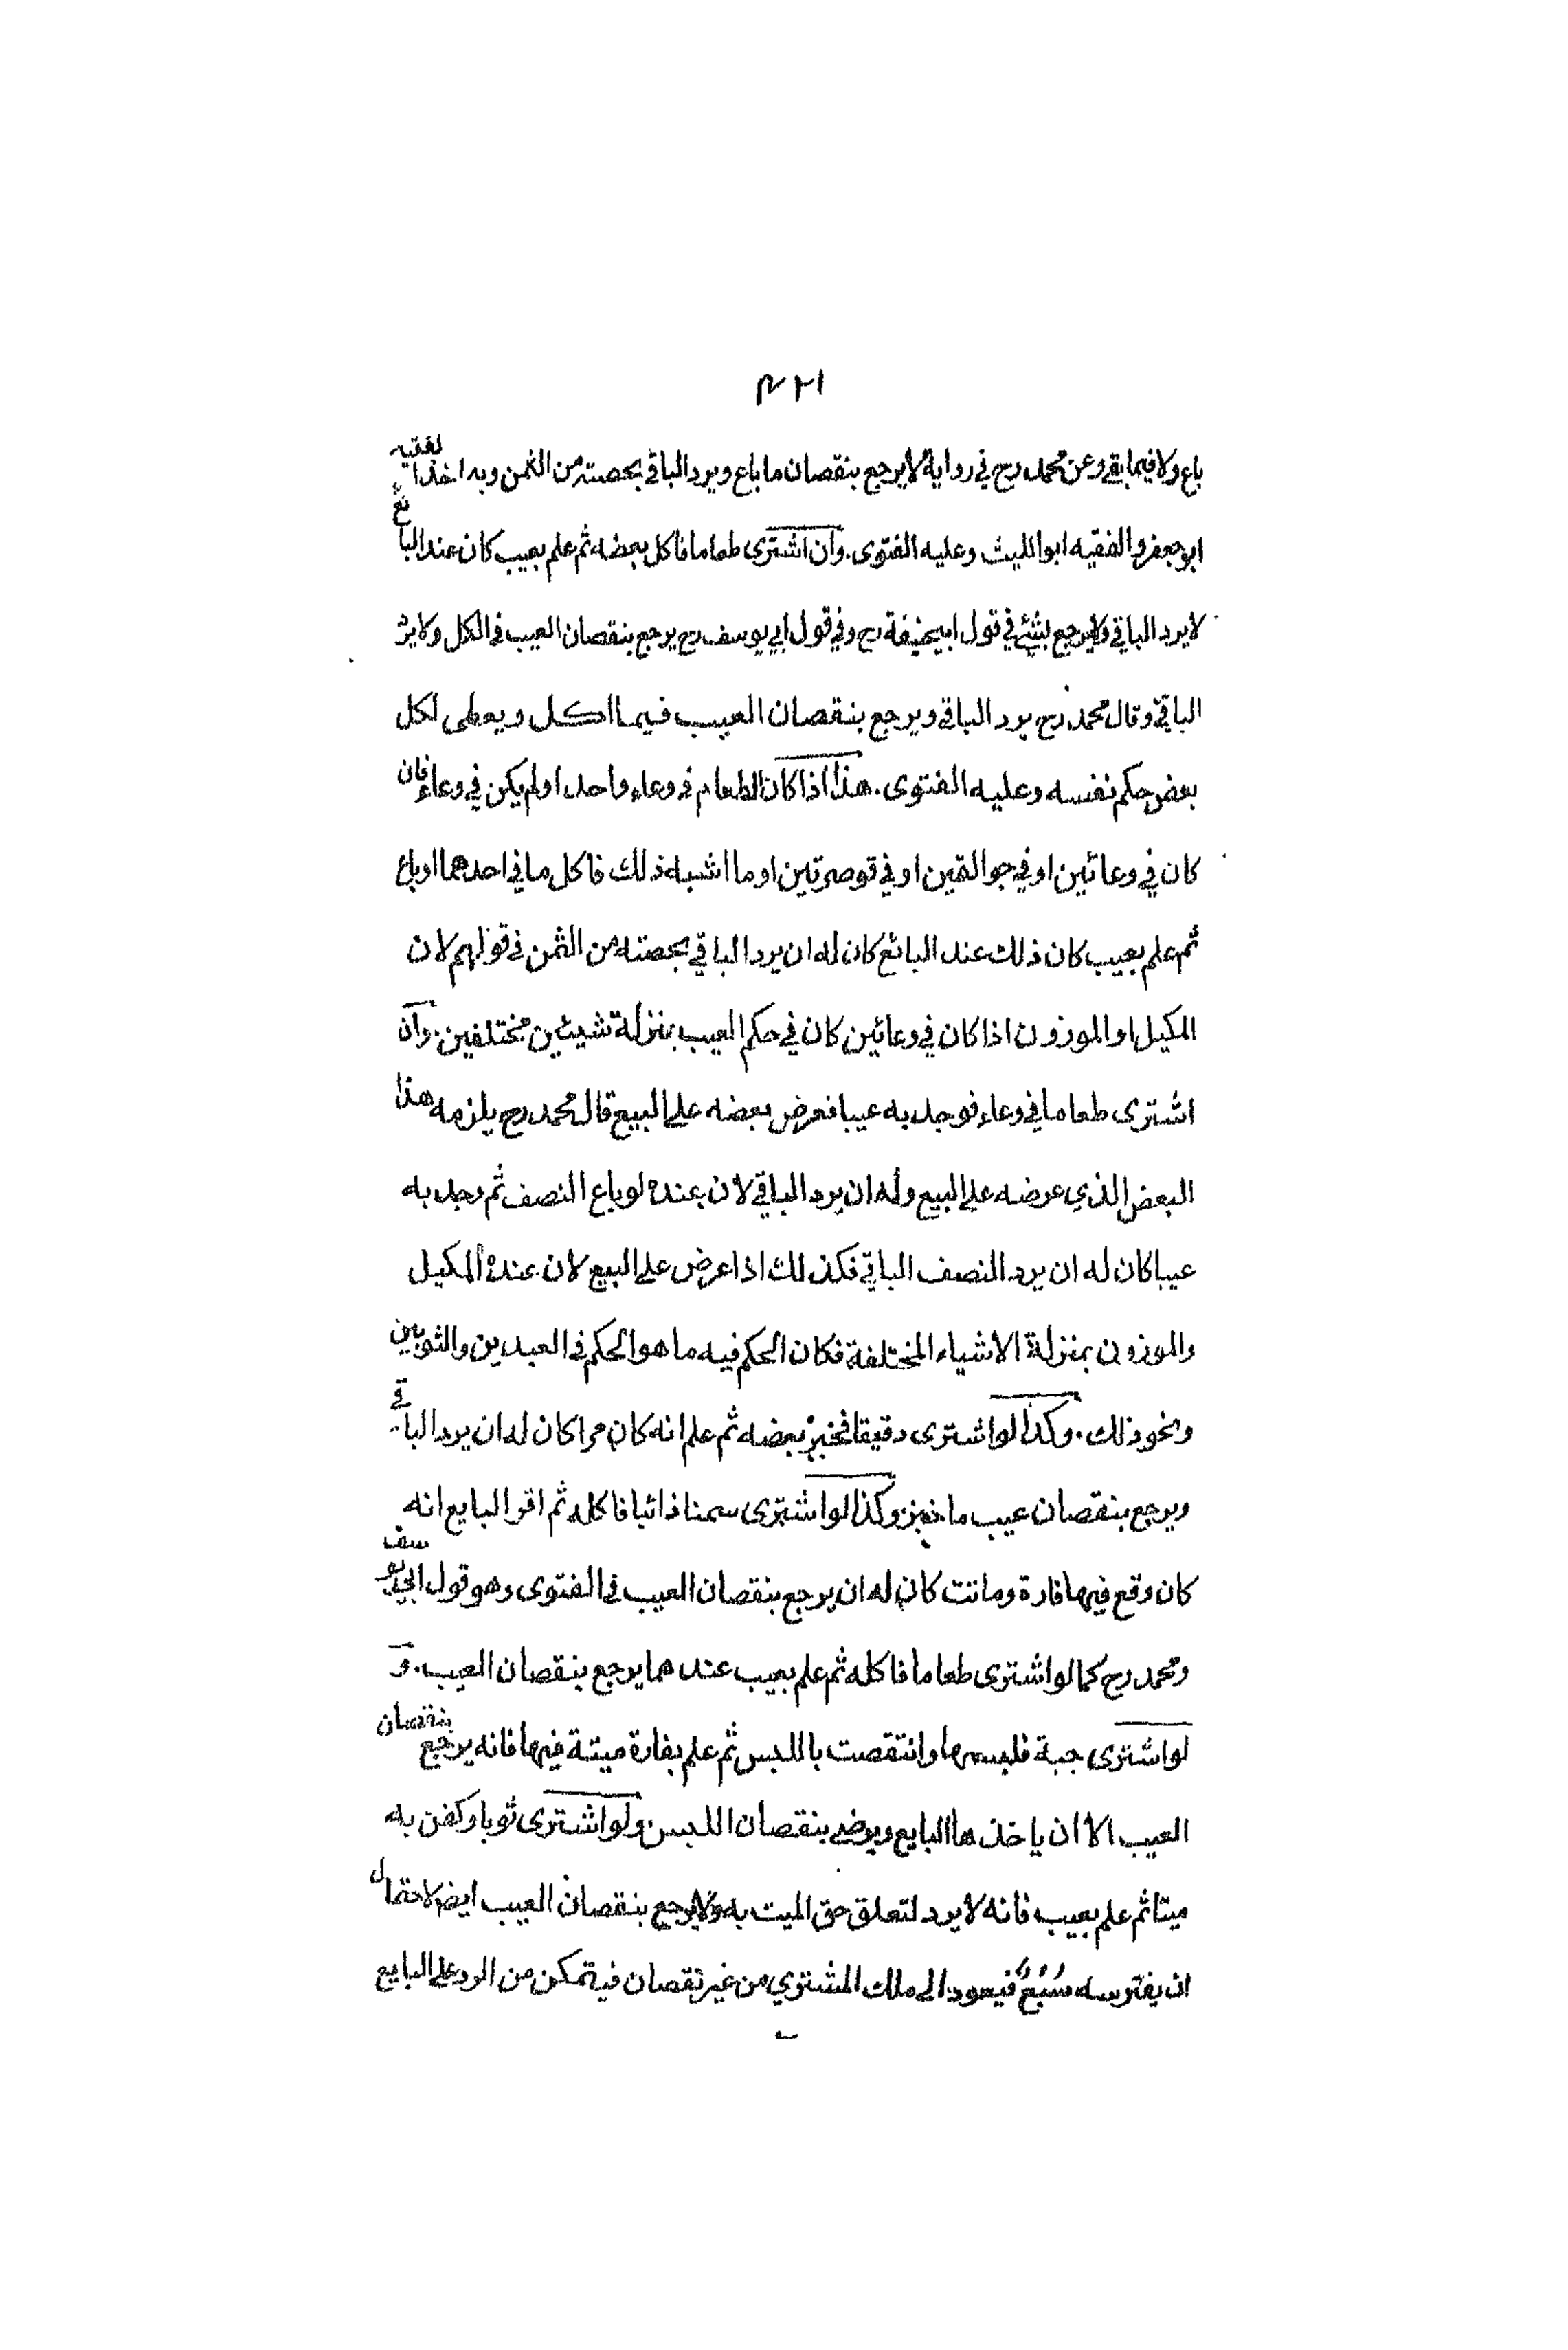 ١٢٣
باع ولا فيما بقي وعن محمد رح في رواية لا يرجع بنقصان ما باع ويرد الباقي بحصته من الثمن وبه اخذ الفقيه
ابو جعفر والفقيه ابو الليث وعليه الفتوى. وان اشترى طعاما فاكل بعضه ثم علم بعيب كان عند البائع
لا يرد الباقي ولا يرجع بشئ في قول ابيحنيفة رح وفي قول ابي يوسف رح يرجع بنقصان العيب في الكل ولا يرد
الباقي وقال محمد رح يرد الباقي ويرجع بنقصان العيب فيما اكل ويعطى لكل
بعض حكم نفسه وعليه الفتوى. هذا اذا كان الطعام في وعاء واحد او لم يكن في وعاء فان
كان في وعائين او في جوالقين او في قوصرتين او ما اشبه ذلك فاكل ما في احدهما او باع
ثم علم بعيب كان ذلك عند البائع كان له ان يرد الباقي بحصته من الثمن في قولهم لان
المكيل او الموزون اذا كان في وعائين كان في حكم العيب بمنزلة شيئين مختلفين. وان
اشترى طعاما في وعاء فوجد به عيبا فعرض بعضه على البيع قال محمد رح يلزمه هذا
البعض الذي عرضه على البيع وله ان يرد الباقي لان عنده لو باع النصف ثم وجد به
عيبا كان له ان يرد النصف الباقي فكذلك اذا عرض على البيع لان عنده المكيل
والموزون بمنزلة الاشياء المختلفة فكان الحكم فيه ما هو الحكم في العبدين والثوبين
ونحو ذلك. وكذا لو اشترى دقيقا فخبز بعضه ثم علم انه كان مرا كان له ان يرد الباقي
ويرجع بنقصان عيب ما خبز وكذا لو اشترى سمنا ذائبا فاكله ثم اقر البايع انه
كان وقع فيها فارة وماتت كان له ان يرجع بنقصان العيب في الفتوى وهو قول ابي يوسف
ومحمد رح كما لو اشترى طعاما فاكله ثم علم بعيب عندهما يرجع بنقصان العيب. و
لو اشترى جبة فلبسها وانتقصت باللبس ثم علم بفارة ميتة فيها فانه يرجع بنقصان
العيب الا ان ياخذها البايع ويرضى بنقصان اللبس ولو اشترى ثوبا وكفن به
ميتا ثم علم بعيب فانه لا يرد لتعلق حق الميت به ولا يرجع بنقصان العيب ايضا لاحتمال
ان يفترسه سَبُعٌ فيعود الى ملك المشتري من غير نقصان فيتمكن من الرد على البايع